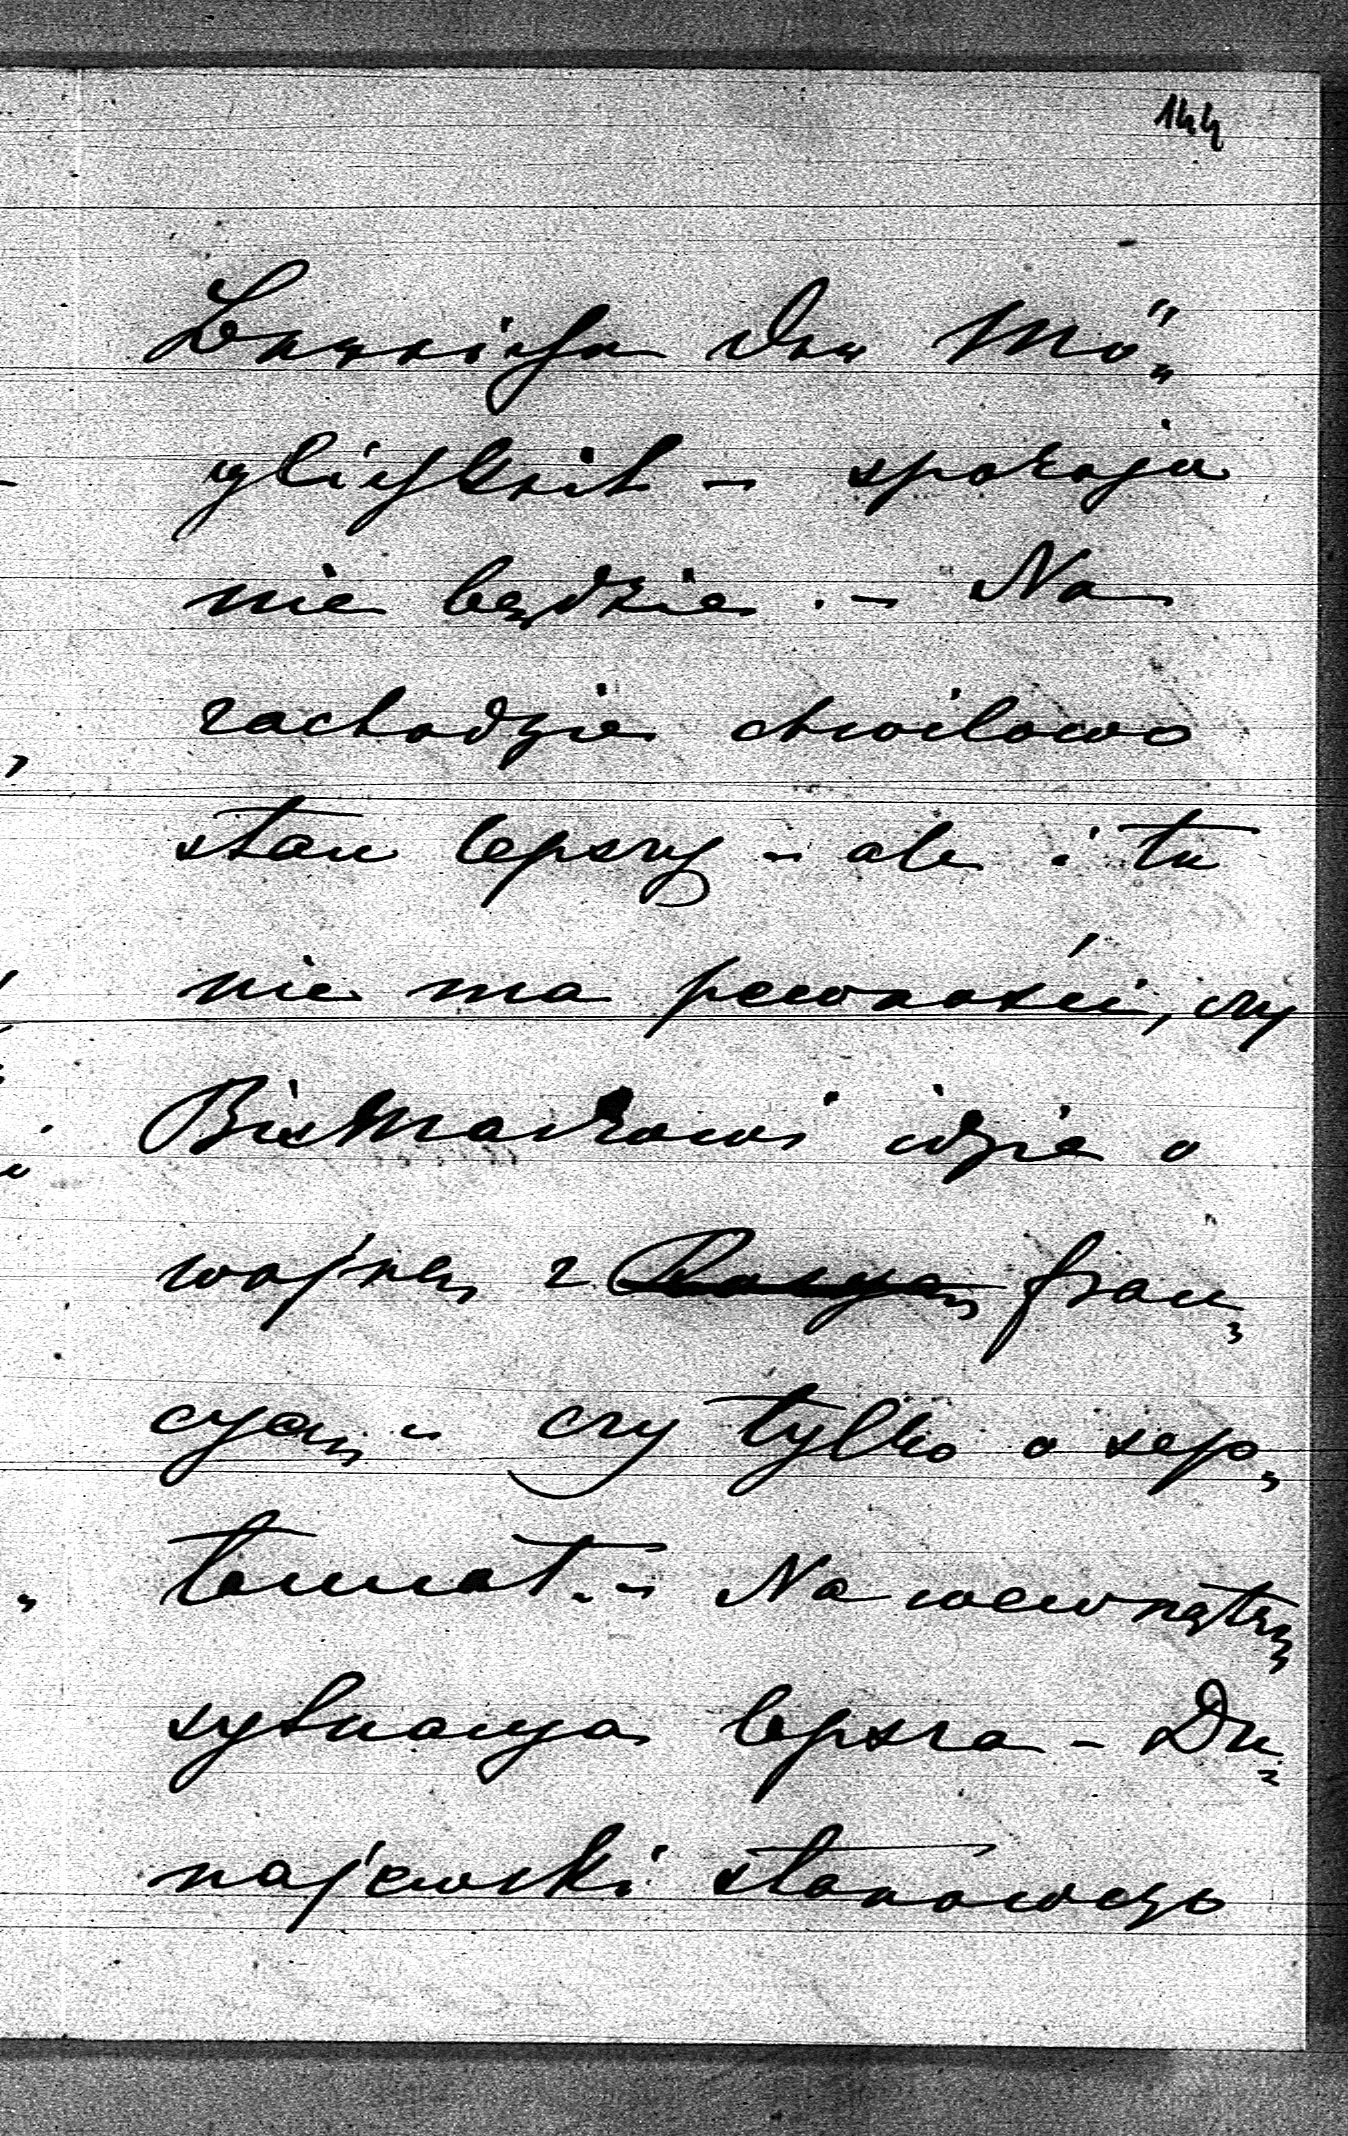 144
Bereich der Mö„
glichkeit – spokoju
nie będzie. – Na
zachodzie chwilowo
stan lepszy – ale i tu
nie ma pewności, czy
Bismarkowi idzie o
wojnę z Rosyą fran„
cyą – czy tylko o sep„
tennat. – Na wewnątrz
sytuacya lepsza – Du„
najewski stanowczo